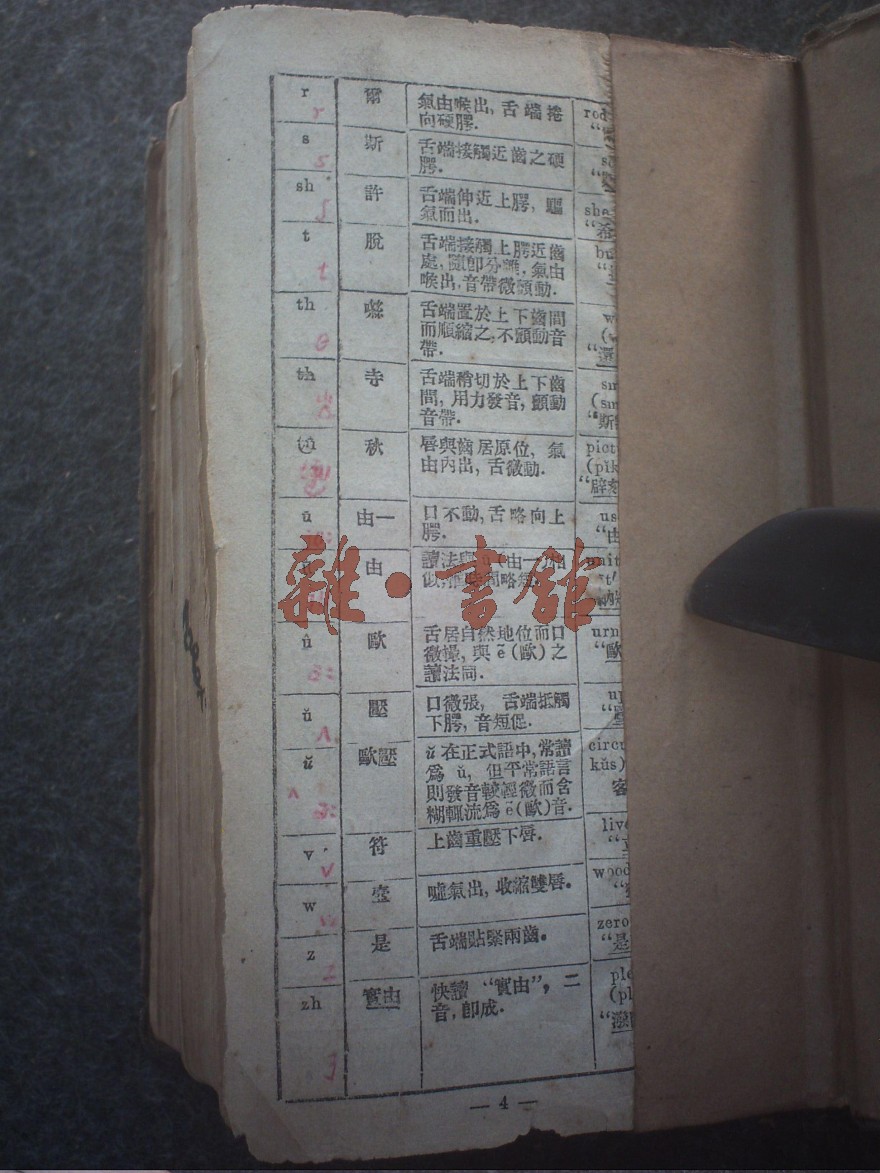 r 爾 氣由喉出, 舌端捲
r 向硬腭.
s 斯 舌端接觸近齒之硬
s 腭.
sh 許 舌端伸近上腭, 驅
ʃ 氣而出.
t 脫 舌端接觸上腭近齒
t 處, 隨卽分離, 氣由
喉出, 音帶微顫動. bu
th 舌端置於上下齒間
θ 而順縮之, 不顫動音
帶.
th 寺 舌端稍切於上下齒
間, 用力發音, 顫動
音帶.
秋 唇與齒居原位, 氣 pict
由內出, 舌微動. (pĭk
ū 由一 口不動, 舌略向上 us
腭. "由
由 讀法與 (由一)相 unit
似, 略短
û 歐 舌居自然地位而口 urn
微撮, 與ẽ(歐)之 "歐
讀法同.
ŭ 壓 口微張, 舌端抵觸 up
ʌ 下腭, 音短促.
ŭ 歐壓 ŭ在正式語中, 常讀 circu
爲ŭ, 但平常語言 kŭs)
ʌ 則發音較輕微而含 客
糊輒流爲ẽ(歐)音.
v 符 上齒重壓下唇. live
v
w 壺 噓氣出, 收縮雙唇. wood
z 是 舌端貼緊兩齒. zero
z "是
zh 實由 快讀 "實由", 二 ple
音, 卽成. (pl
— 4 —
雜·書館